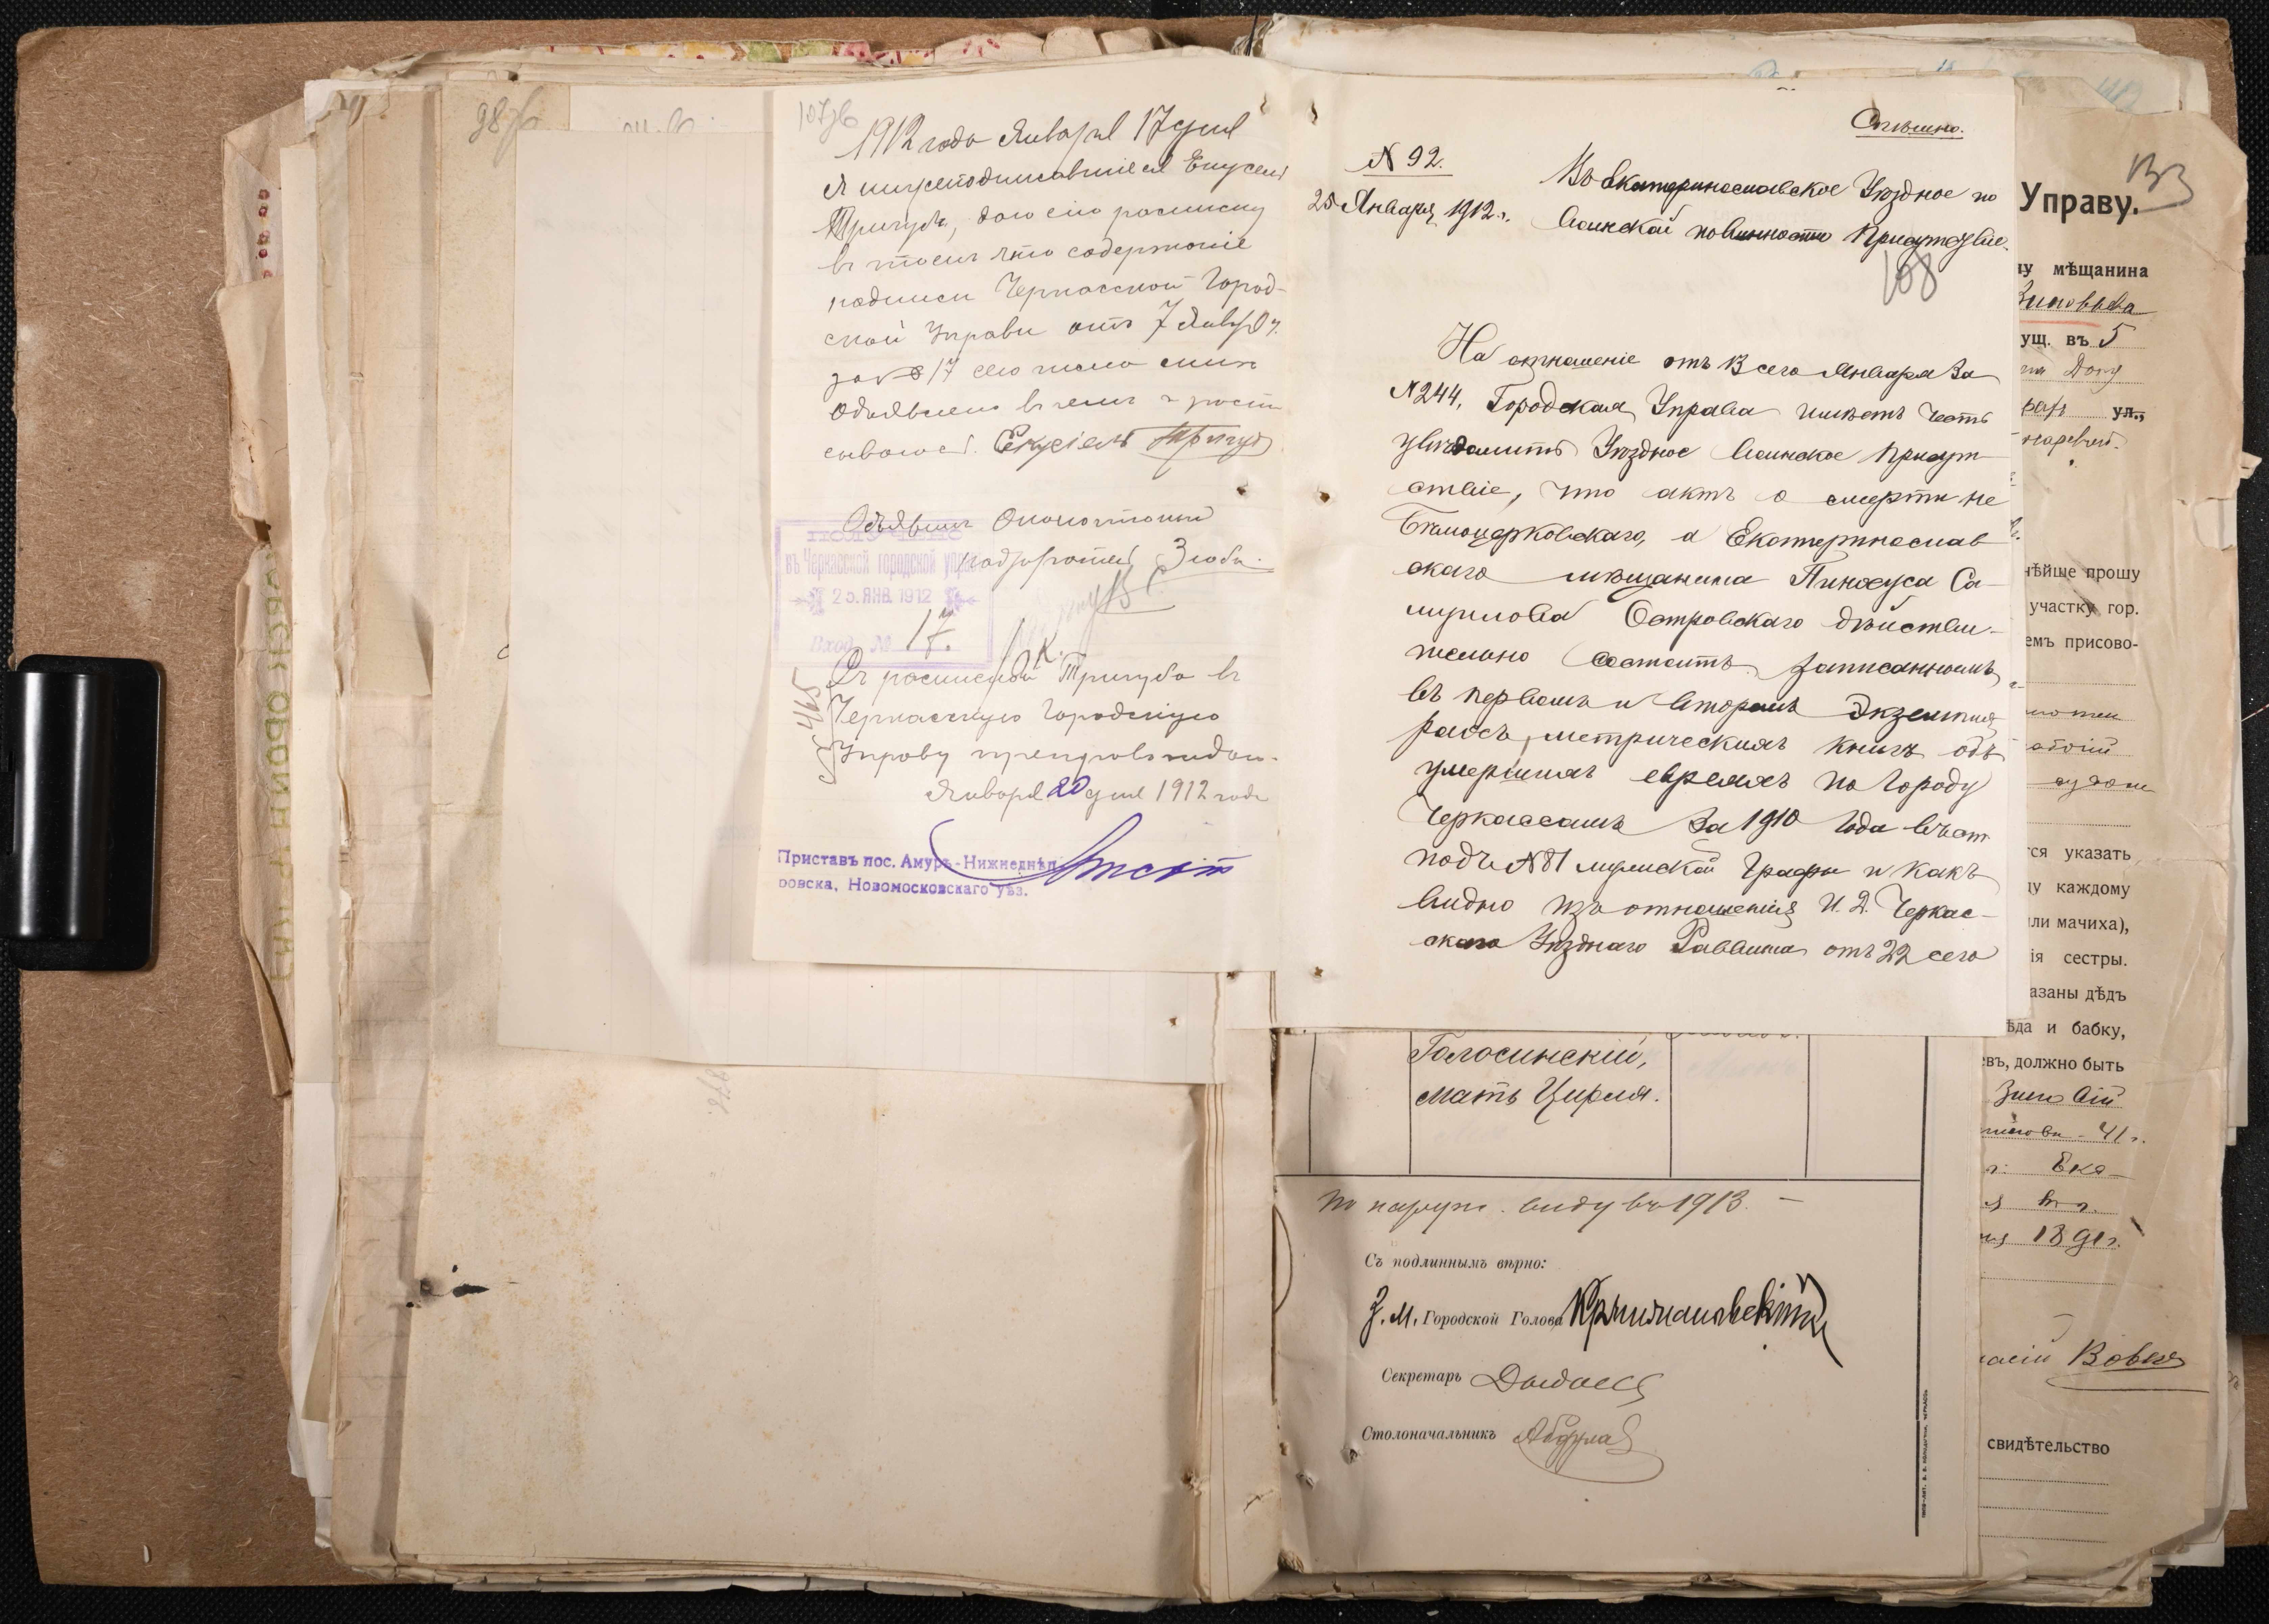 107об
1912 года Января 17 дня
Я нижеподписавшійся Енусель
Тригубъ, даю сію росписку
въ томъ что содержаніе
надписи Черкасской Город-
ской Управи отъ 7 Января
за № 17 сего числа мнѣ
объявлено въ чемъ и роспи
сываюсь. Енусіель Тригуб
Объявилъ Околоточный
надзиратель Злоби
въ Черкасской городской управѣ
25. ЯНВ. 1912
Вход. № 17.
Съ роспиской Тригуба въ
Черкасскую Городскую
Управу препровождаю.
Января 20 дня 1912 года
№ 465
Приставъ пос. Амуръ-Нижнеднѣп-
ровска, Новомосковскаго уѣз.
98об
Спѣшно.
№ 92.
25 Января 1912 г.
Въ Екатеринославское Уѣздное по
воинской повинности Присутствіе.
108
На отношеніе отъ 13 сего Января за
№ 244, Городская Управа имѣетъ честь
увѣдомить Уѣздное Воинское Присут-
ствіе, что актъ о смерти не
Бѣлоцерковскаго, а Екатеринослав
скаго мѣщанина Пинхуса Са-
муилова Островскаго дѣйстви-
тельно состоитъ записаннымъ
въ первомъ и второмъ экземпля
рахъ метрическихъ книгъ объ
умершихъ евреяхъ по городу
Черкассамъ за 1910 года въ ст.
подъ № 81 мужской графы и какъ
видно изъ отношенія И. Д. Черкас-
скаго Уѣзднаго Раввина отъ 22 сего
Голосинскій,
мать Цирля.
по наружн. виду въ 1913. —
Съ подлиннымъ вѣрно:
З. М. Городской Голова
Секретарь
Столоначальникъ
133
Управу.
мѣщанина
Зиновьева
ущ. въ 5
ул.,
нѣйше прошу
участку гор.
емъ присово-
тся указать
ду каждому
или мачиха),
ія сестры.
азаны дѣдъ
ѣда и бабку,
евъ, должно быть
41 г.
Ека-
1891 г.
Вовкъ
свидѣтельство